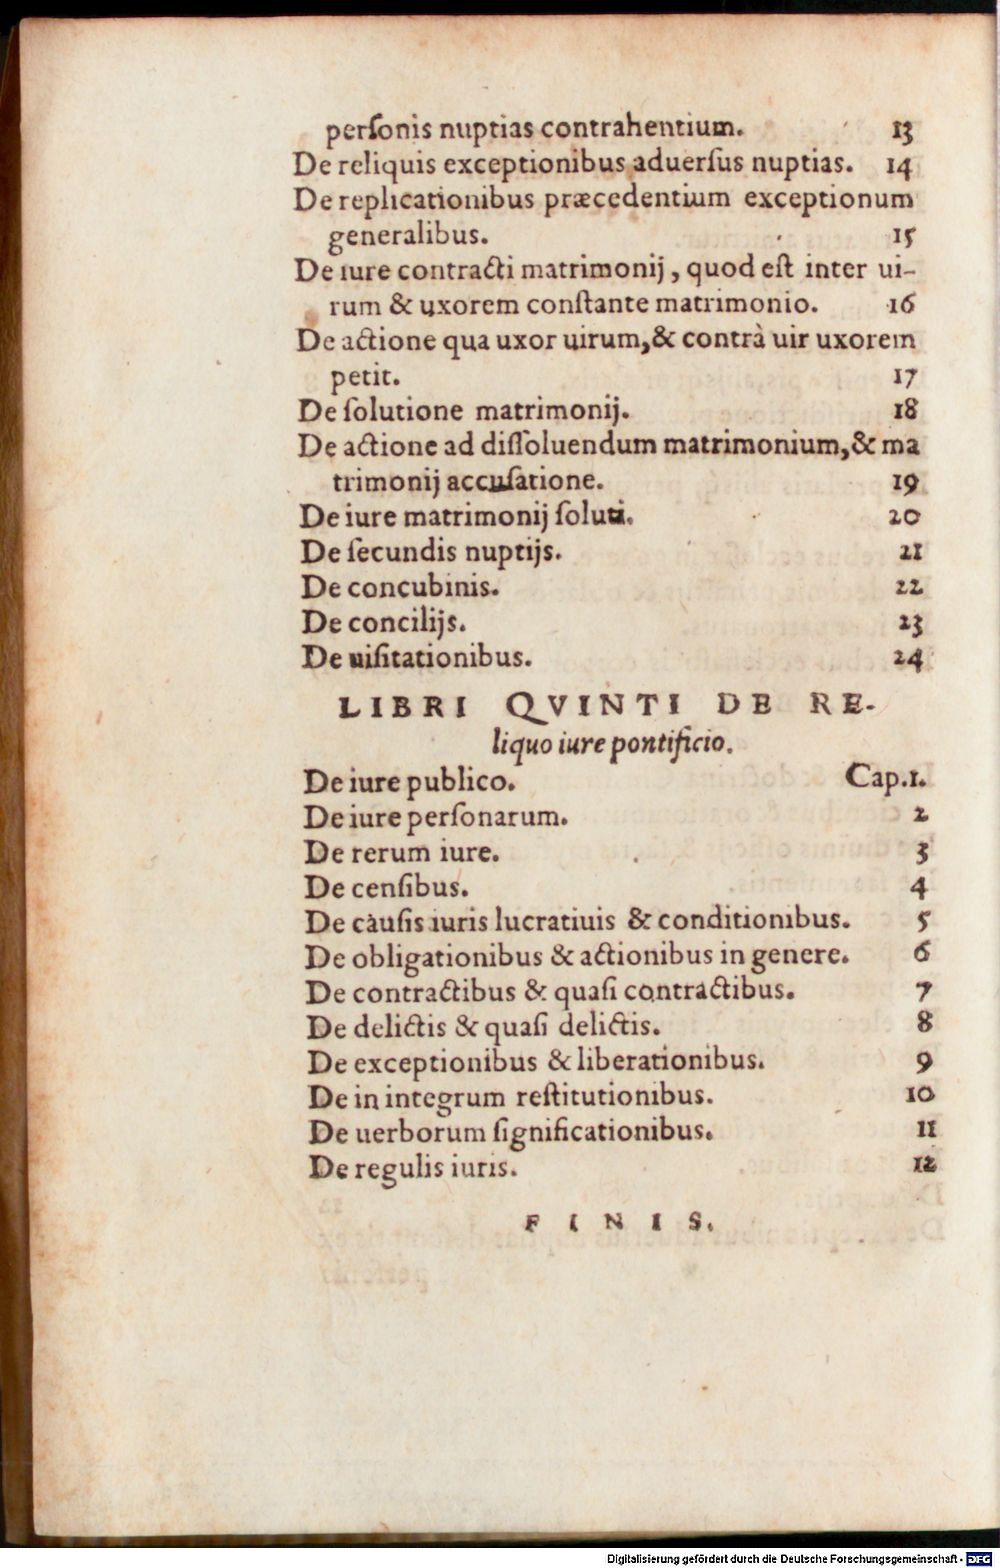 perſonis nuptias contrahentium. 13
De reliquis exceptionibus aduerſus nuptias. 14
De replicationibus præcedentium exceptionum
generalibus. 15
De iure contracti matrimonij, quod eſt inter ui-
rum & uxorem conſtante matrimonio. 16
De actione qua uxor uirum,& contrà uir uxorem
petit. 17
De ſolutione matrimonij. 18
De actione ad diſſoluendum matrimonium,& ma
trimonij accuſatione. 19
De iure matrimonij ſoluti. 20
De ſecundis nuptijs. 21
De concubinis. 22
De concilijs. 23
De uiſitationibus. 24
LIBRI QVINTI DE RE-
liquo iure pontificio.
De iure publico. Cap.1.
De iure perſonarum. 2
De rerum iure. 3
De cenſibus. 4
De cauſis iuris lucratiuis & conditionibus. 5
De obligationibus & actionibus in genere. 6
De contractibus & quaſi contractibus. 7
De delictis & quaſi delictis. 8
De exceptionibus & liberationibus. 9
De in integrum reſtitutionibus. 10
De uerborum ſignificationibus. 11
De regulis iuris. 12
FINIS.
Digitalisierung gefördert durch die Deutsche Forschungsgemeinschaft - DFG